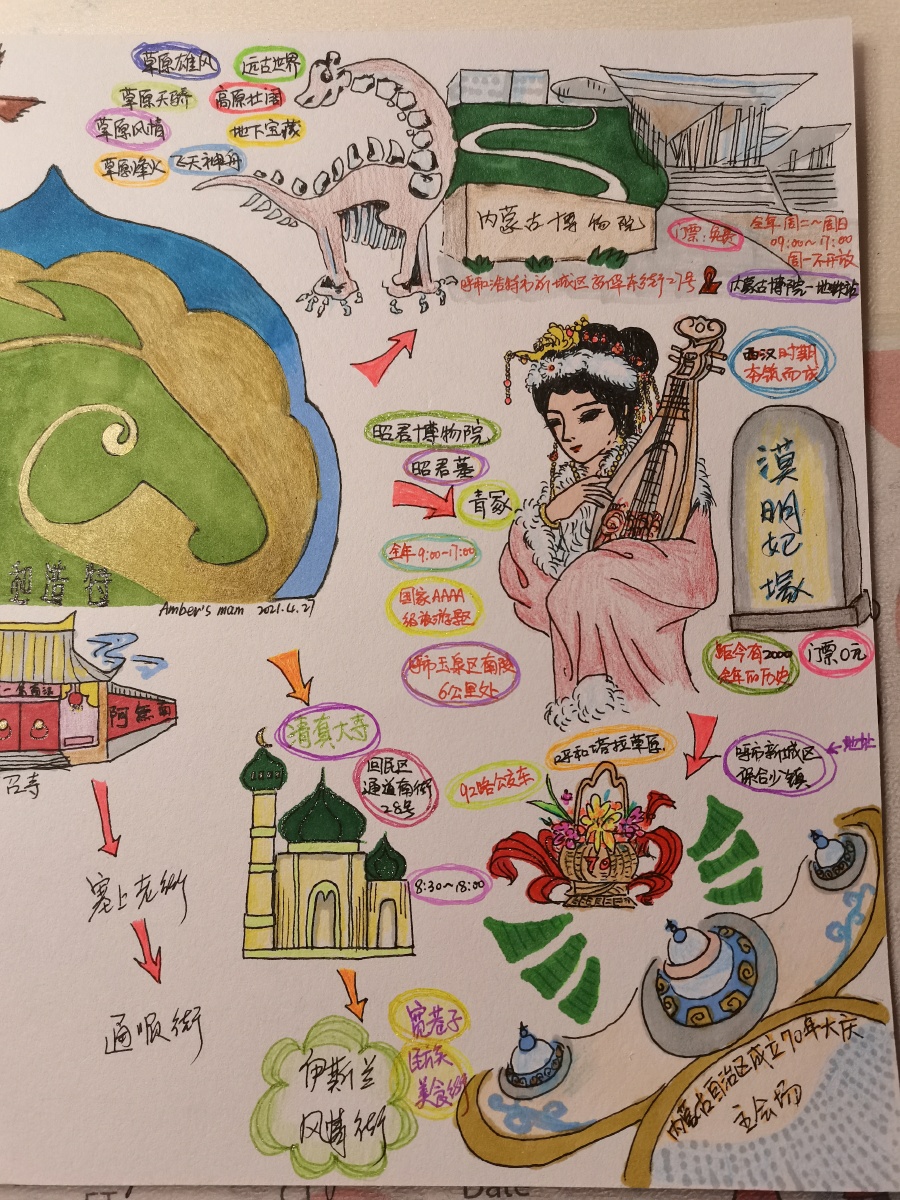 草原雄风
远古世界
草原天骄
高原壮阔
草原风情
地下宝藏
草原烽火
飞天神舟
内蒙古博物院
门票:免费
全年周二~周日
09:00~17:00
周一不开放
呼和浩特市新城区新华东街27号
内蒙古博院-地铁站
西汉时期
夯筑而成
昭君博物院
昭君墓
青冢
全年9:00-17:00
国家AAAA
级旅游景区
呼市玉泉区南陵
6公里处
漠明妃塚
距今有2000
余年的历史
门票0元
和浩特
Amber's mam 2021.4.21
阿無南
召寺
清真大寺
回民区
通道南街
28号
8:30~18:00
塞上老街
通顺街
伊斯兰
风情街
宽巷子
回族
美食街
呼和塔拉草原
92路公交车
地址
呼市新城区
保合少镇
内蒙古自治区成立70年大庆
主会场
Date